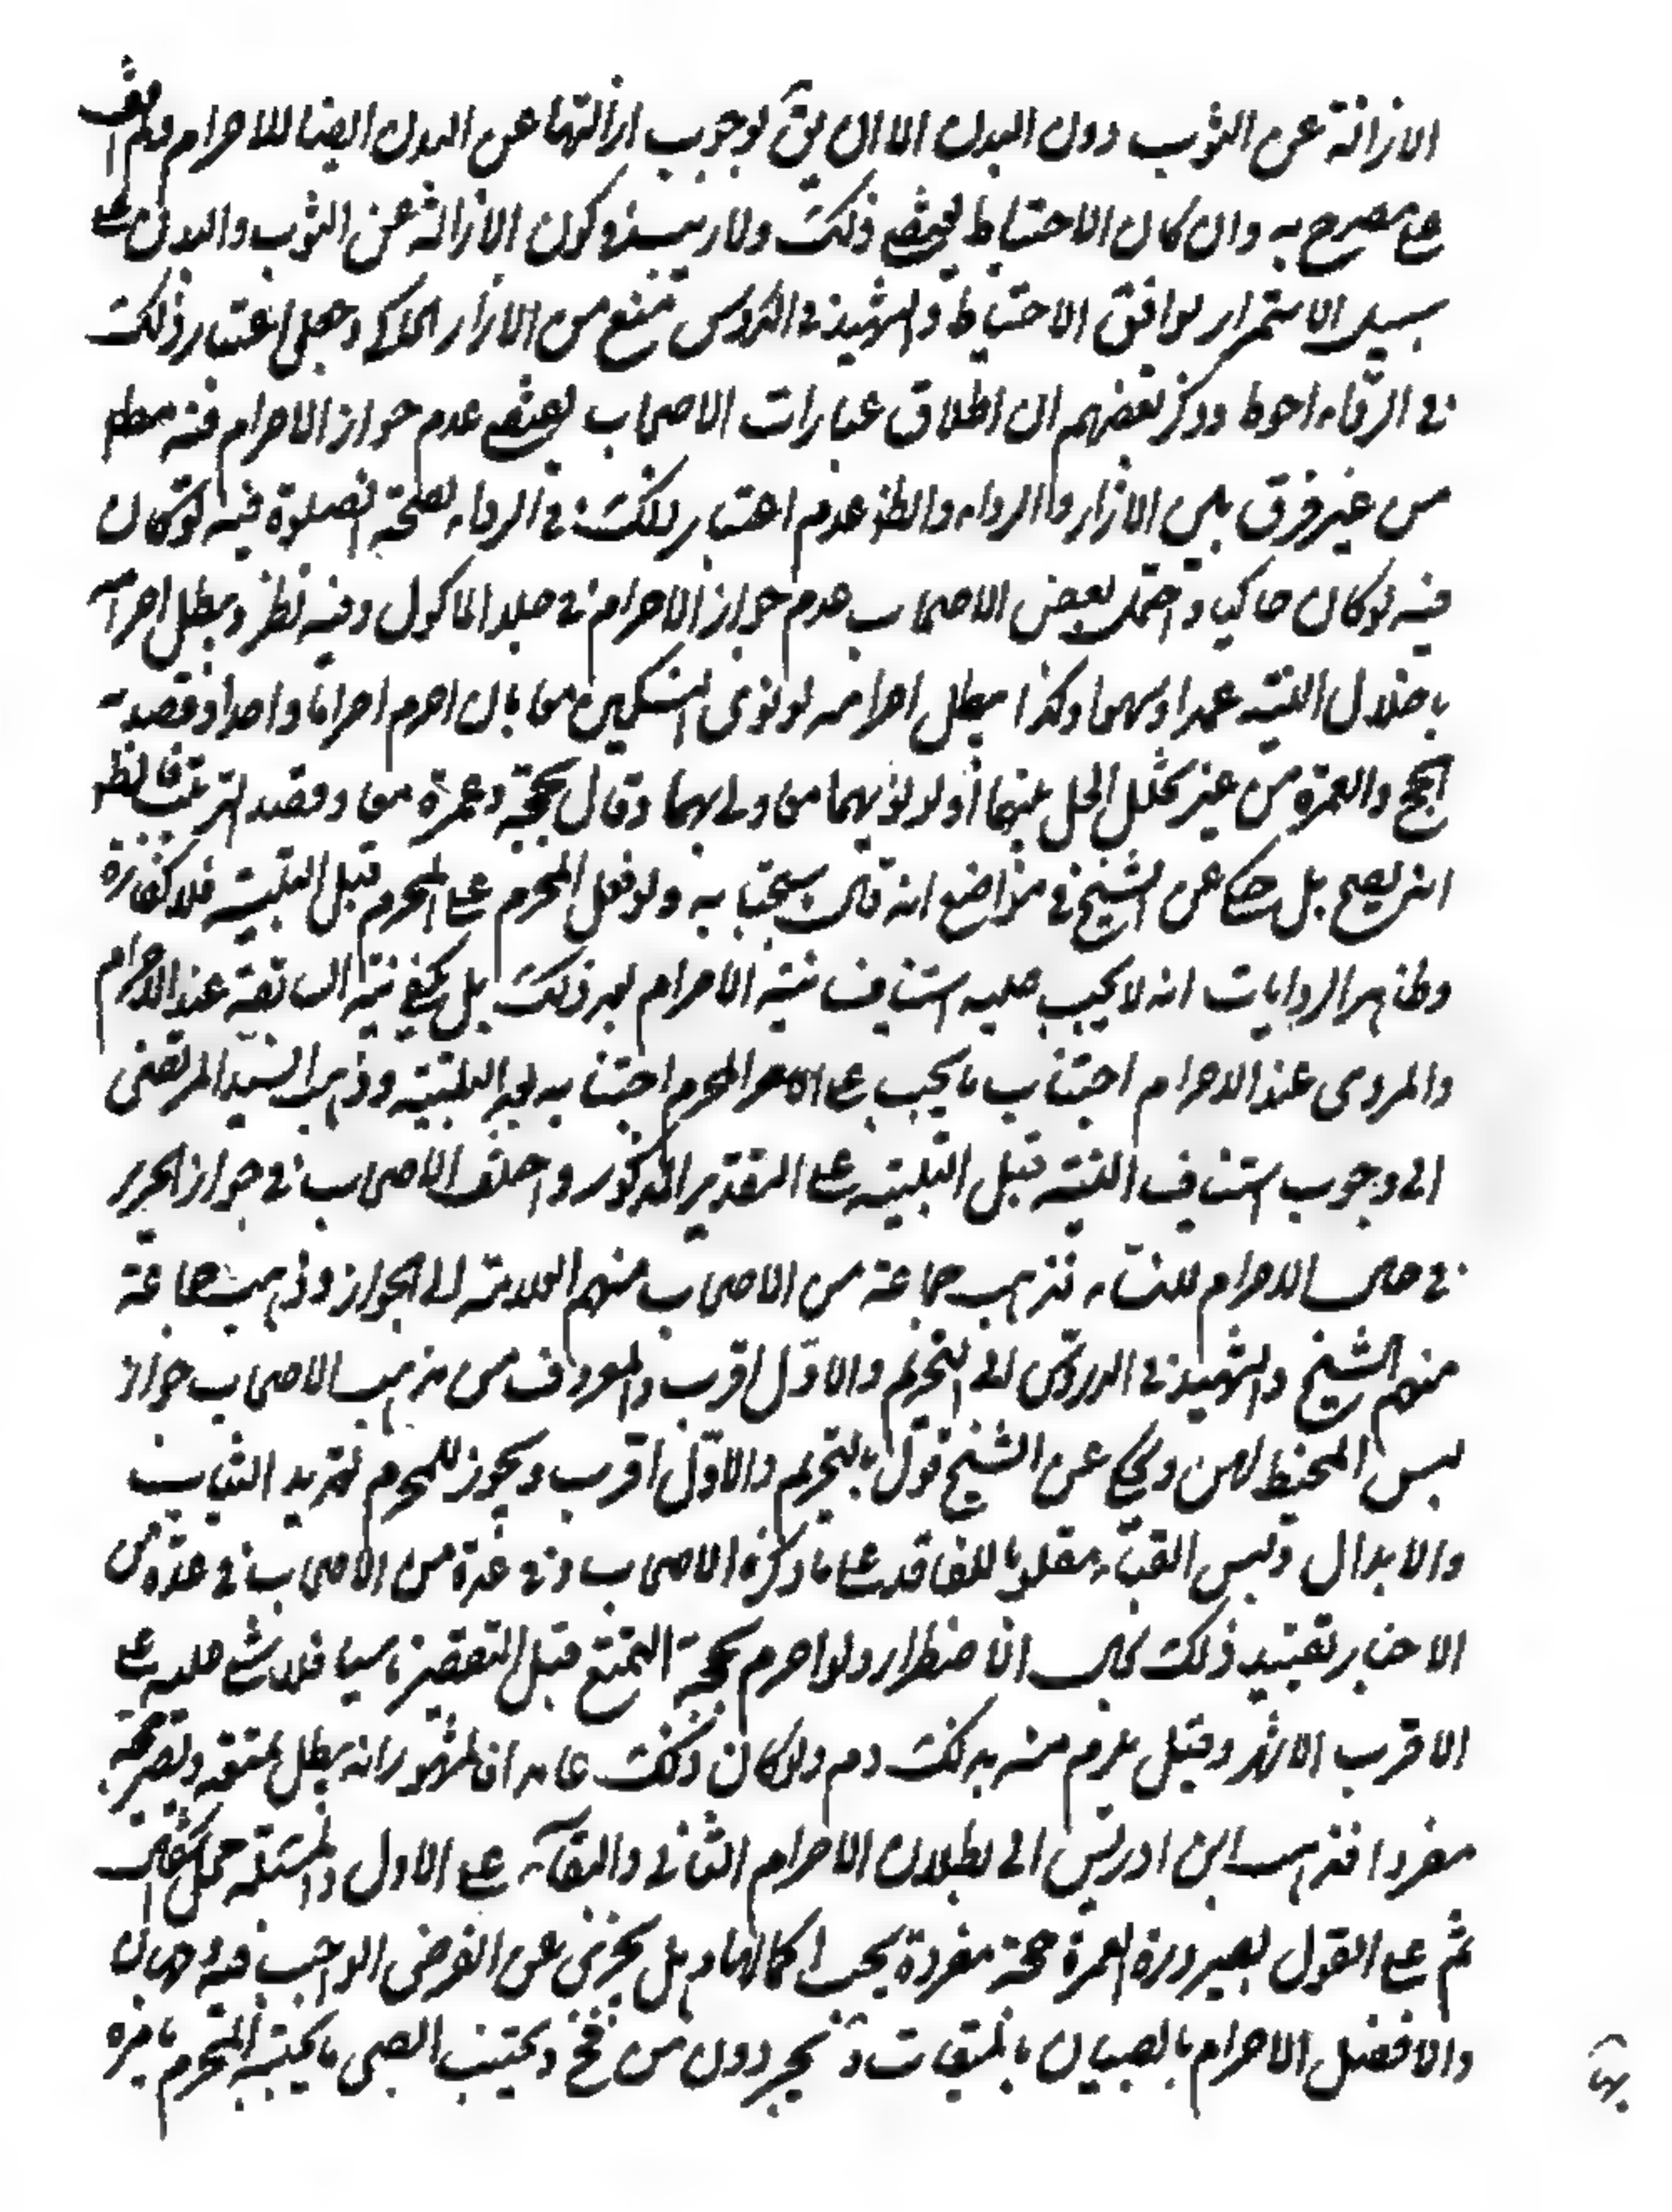 الازالة عن الثوب دون البدن الا ان يق بوجوب ازالتها عن البدن ايضا للاحرام ولم اقف
على مصرح به وان كان الاحتياط يقتضى ذلك ولا ريب فى كون الازالة عن الثوب والبدن على
سبيل الاستمرار يوافق الاحتياط والشهيد فى الدروس منع من الازار الحاكى وجعل اعتبار ذلك
فى الرداء احوط وذكر بعضهم ان اطلاق عبارات الاصحاب يقتضى عدم جواز الاحرام فيه مطلقا
من غير فرق بين الازار والرداء والظ عدم اعتبار ذلك فى الرداء لصحة الصلوة فيه لو كان
فيه لو كان حاكيا واحتمل بعض الاصحاب عدم جواز الاحرام فى جلد الماكول وفيه نظر ويبطل احرامه
باخلال النية عمدا وسهوا وكذا يبطل احرامه لو نوى النسكين معا بان احرم احراما واحدا وقصد به
الحج والعمرة من غير تخلل الحل بينهما او لو نويهما معا ولبى بهما وقال بحجة وعمرة معا وقصد الترتيب فالظ
انه يصح بل حكى عن الشيخ فى مواضع انه قال باستحبابه ولو فعل المحرم على المحرم قبل التلبية فلا كفارة
وظاهر الروايات انه لا يجب عليه استيناف نية الاحرام بعد ذلك بل يكفى نية السابقة عند الاحرام
والمروى عند الاحرام اجتناب ما يجب على المحرم اجتنابه بعد التلبية وذهب السيد المرتضى
الى وجوب استيناف النية قبل التلبية على التقدير المذكور واختلف الاصحاب فى جواز الحرير
فى حال الاحرام للنساء فذهب جماعة من الاصحاب منهم العلامة الى الجواز وذهب جماعة
منهم الشيخ والشهيد فى الدروس الى التحريم والاول اقرب والمعروف من مذهب الاصحاب جواز
لبس المخيط لهن وحكى عن الشيخ قول بالتحريم والاول اقرب ويجوز للمحرم تجديد الثياب
والابدال ولبس القباء مقلوبا للفاقد على ما ذكره الاصحاب وفى عدة من الاصحاب فى عدة من
الاخبار تقييد ذلك بحال الاضطرار ولو احرم بحجة التمتع قبل التقصير ناسيا فلا شئ عليه على
الاقرب الاشهر وقيل يلزم منه بذلك دم ولو كان ذلك عامدا فالمشهور انه يبطل عمرته ويصير حجة
مفردا فذهب ابن ادريس الى بطلان الاحرام الثانى والبقاء على الاول والمسئلة محل اشكال
ثم على القول بصيرورة العمرة حجة مفردة يجب اكمالها وهل يجزى عن الفرض الواجب فيه وجهان
والافضل الاحرام بالصبيان بالميقات و يجردون من فخ ويجتنب الصبى ما يجتنبه المحرم يامره
بها